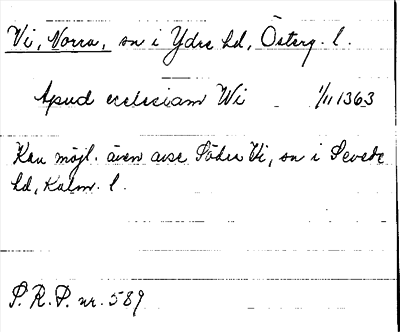 Vi, Norra, sn i Ydre hd, Österg. l.
Apud ecclesiam Wi - 1/11 1363
Kan möjl. även avse Södra Vi, sn i Sevede
hd, Kalm. l.
S. R. P. nr. 589